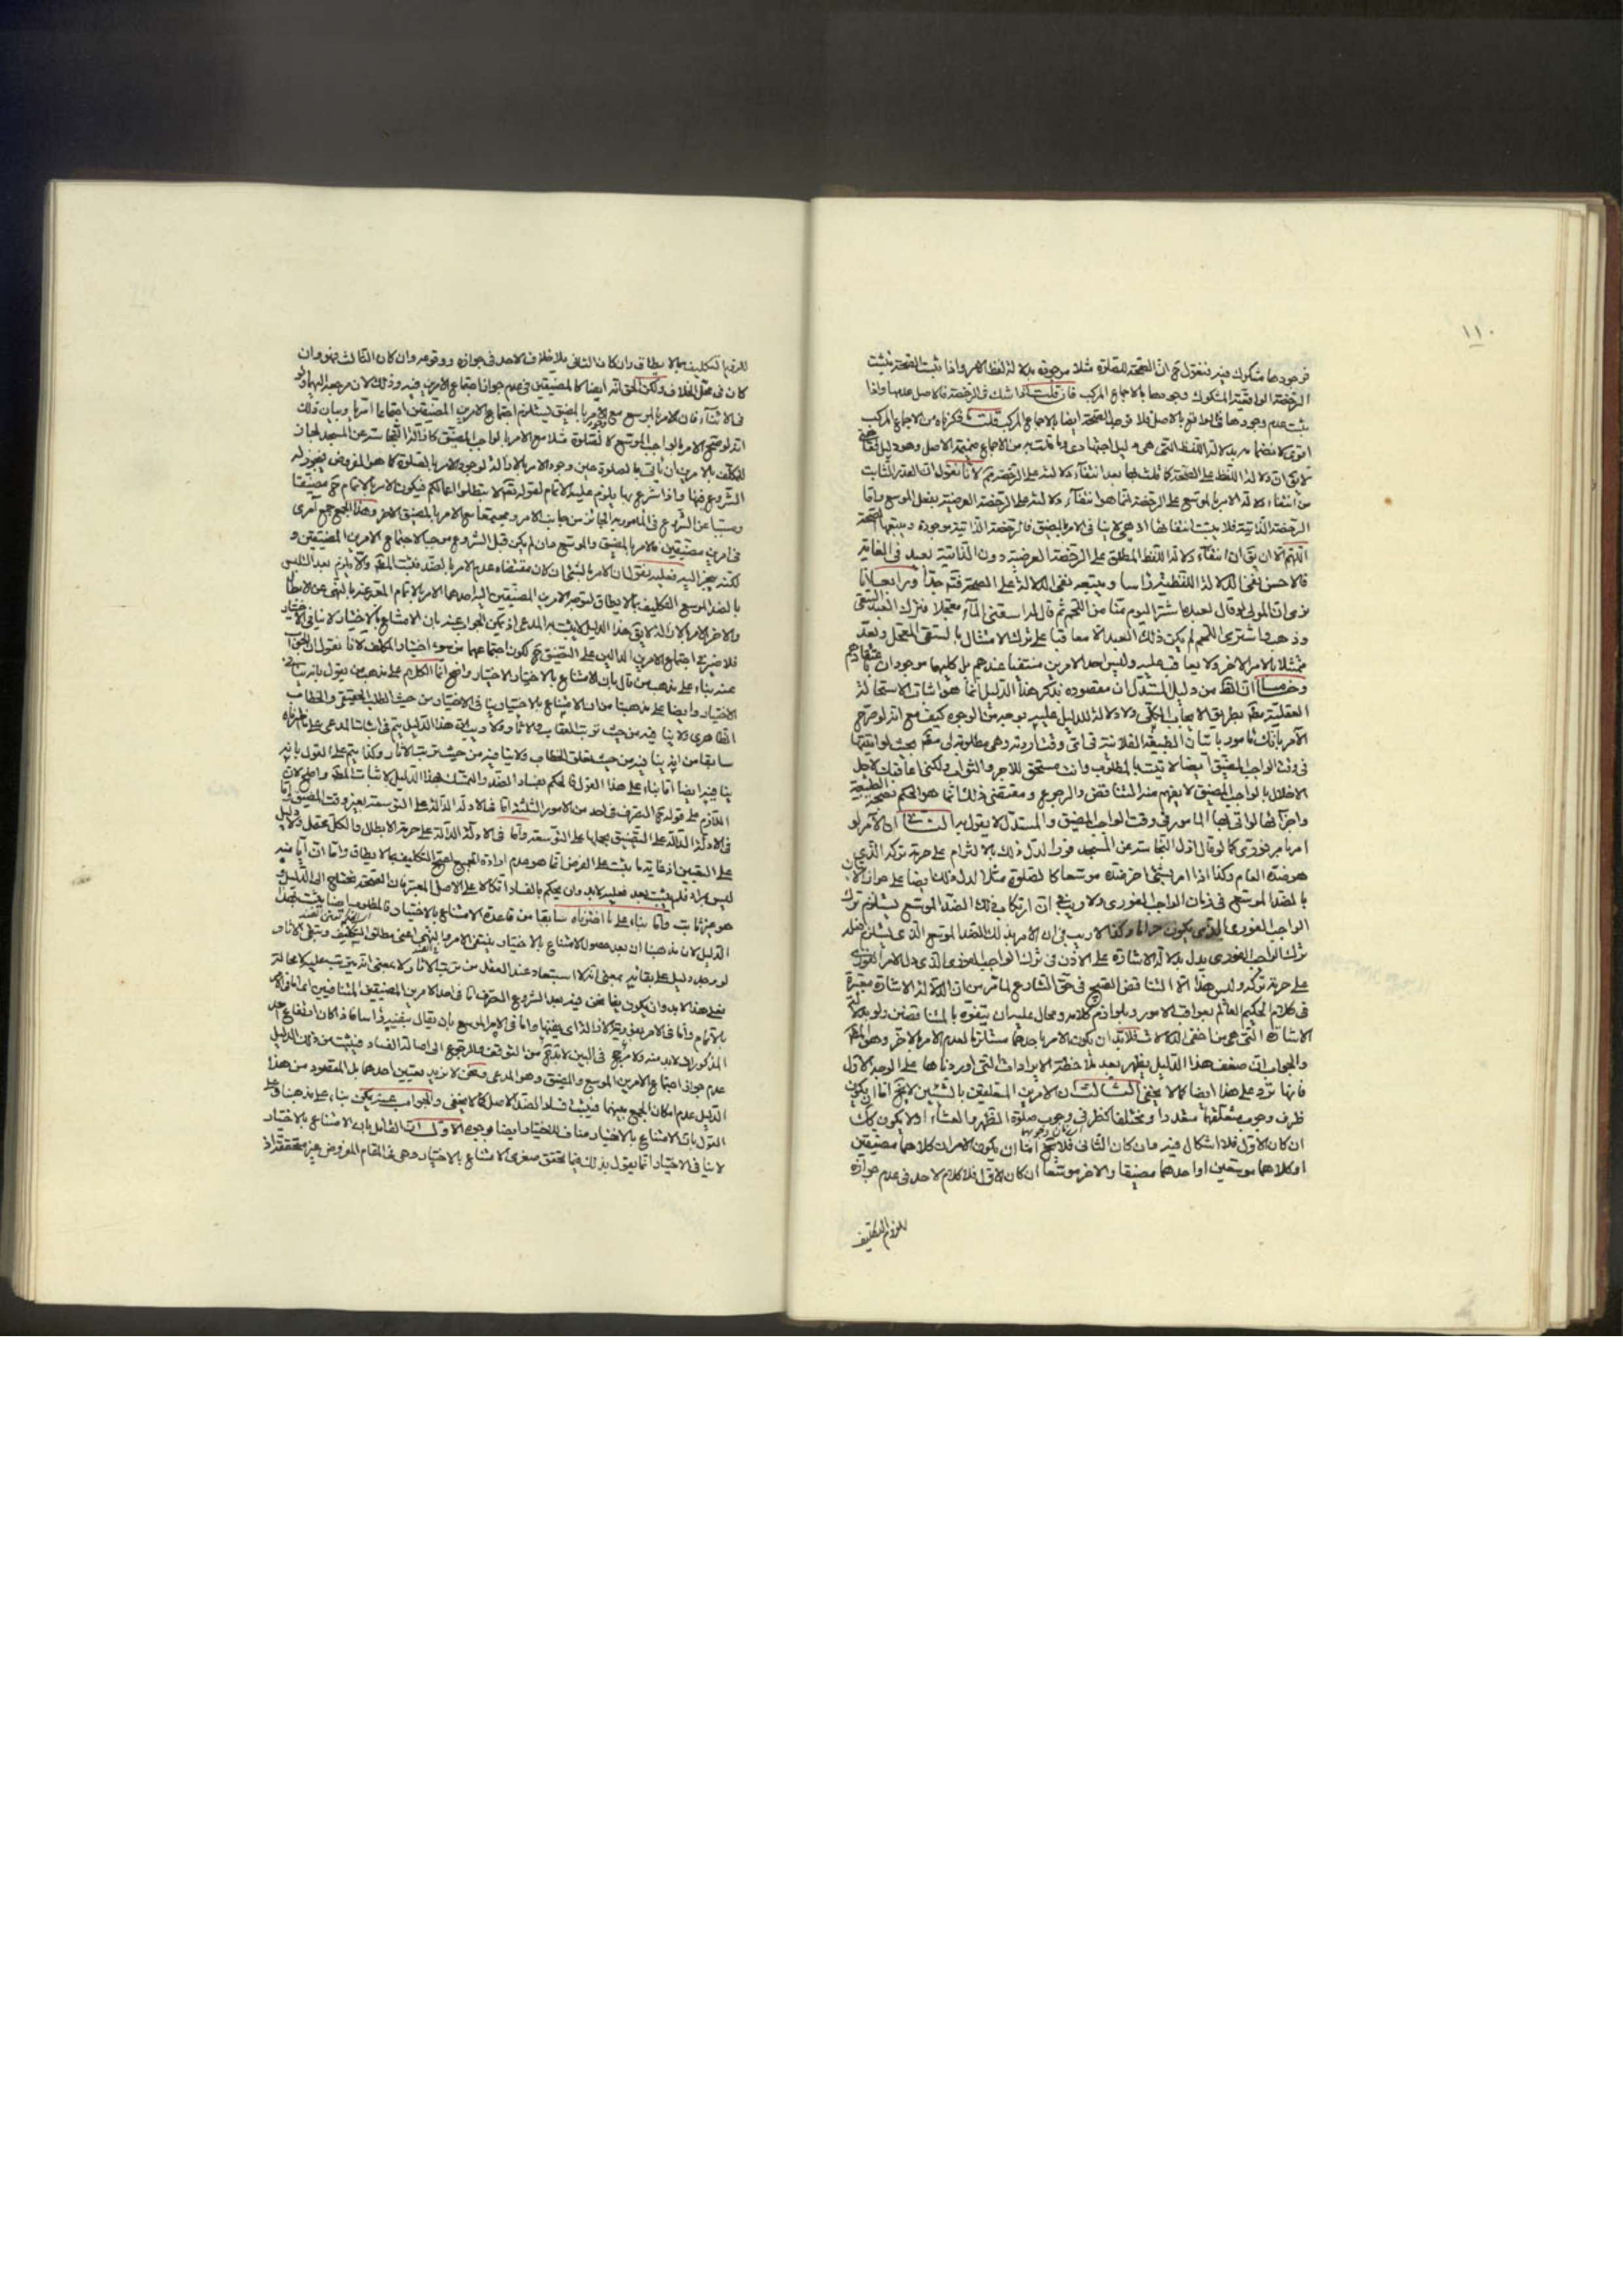 ١١٠
فوجودها مشكوك فيه فنقول ح ان الصحة للصلوة مثلا موجودة بدلالة لفظ الامر واذا ثبت الصحة يثبت
الرخصة الواقعية المشكوك فى وجودها بالاجماع المركب فان قلت اذا شك فى الرخصة فالاصل عدمها واذا
ثبت عدم وجودها فى الواقع بالاصل فلا توجد الصحة ايضا بالاجماع المركب قلت ما ذكرناه من الاجماع المركب
اقوى لانضمامه بدلالة اللفظ التى هى دليل اجتهادى وما قلت به من الاجماع ضميمته الاصل وهو دليل
لا يق ان دلالة اللفظ على الصحة كما بعد انتفاء دلالته على الرخصة لانا نقول ان القدر الثابت
من انتفاء دلالة الامر بالموسع على الرخصة انما هو انتفاء دلالته على الرخصة العرضية بفعل الموسع واما
الرخصة الذاتية فلا يثبت انتفائها اذ هى لا ينافى الامر بالمضيق فالرخصة الذاتية موجودة ويتبعها الصحة
اللهم الا ان يق ان انتفاء دلالة اللفظ المطلق على الرخصة العرضية دون الذاتية بعيد فى الغاية
فالاحسن نفى الدلالة اللفظية راسا ويتبعه نفى الدلالة على الصحة ورابعا انا
نرى ان المولى لو قال لعبده اشتر اليوم منا من اللحم ثم قال له اسقنى الماء معجلا فترك العبد السقى
وذهب واشترى اللحم لم يكن ذلك العبد الا معاقبا على ترك الامتثال بالسقى المعجل ويعد
ممتثلا بالامر الاخر ولا يعاقب عليه وليس احد الامرين منتفيا عندهم بل كليهما موجودان
وخامسا ان الظ من دليل المستدل ان مقصوده بذكر هذا الدليل انما هو اثبات الاستحالة
العقلية بطريق الايجاب الكلى ولا دلالة للدليل عليه بوجه من الوجوه كيف مع انه لو صرح
الآمر بانك مامور باتيان الطبيعة الفلانية فى اى وقت اردته وهى مطلوبة لى بحيث لو اتيتها
فى وقت الواجب المضيق ايضا لاتيت بالمطلوب وانت مستحق للاجر والثواب ولكنى اعاقبك لاجل
الاخلال بالواجب المضيق لا يفهم منه التناقض والرجوع ومقتضى ذلك انما هو الحكم بصحة الطبيعة
واجزائها لو اتى بها المامور فى وقت الواجب المضيق والمستدل لا يقول به الثانى ان الآمر لو
امر بامر فورى كما لو قال ازل النجاسة عن المسجد فورا لدل ذلك بالالتزام على حرمة تركه الذى
هو ضده العام وكذا اذا امر بشئ اخر ضده موسعا كالصلوة مثلا لدل ذلك ايضا على جواز الاتيان
بالضد الموسع فى زمان الواجب الفورى ولا ريب فى ان ارتكاب ذلك الضد الموسع يستلزم ترك
الواجب الفورى الذى يكون حراما وكذا لا ريب فى ان الامر بذلك الضد الموسع الذى يستلزم فعله
ترك الواجب الفورى يدل بدلالة الاشارة على الاذن فى ترك الواجب الفورى الذى دل الامر الفورى
على حرمة تركه وليس هذا الا التناقض القبيح فى حق الشارع لما مر من ان الدلالة الاشارة معتبرة
فى كلام الحكيم العالم بعواقب الامور وبلوازم كلامه ومحال عليه ان يتفوه بالمتناقضين ولو بدلالة
الاشارة التى هى من اخفى الدلالات فلا بد ان يكون الامر باحدهما مستلزما لعدم الامر بالاخر وهو المط
والجواب ان ضعف هذا الدليل يظهر بعد ملاحظة الايرادات التى اوردناها على الوجه الاول
فانها ترد على هذا ايضا كما لا يخفى الثالث ان الامرين المتعلقين بالشيئين لا يخ اما ان يكون
ظرف وجوب متعلقهما متعددا ومختلفا كظرفى وجوب صلوة الظهر والعشاء او لا يكون كك
ان كان الاول فلا اشكال فيه وان كان الثانى فلا يخ اما ان يكون الامران كلاهما مضيقين
او كلاهما موسعين او احدهما مضيقا والاخر موسعا ان كان الاول فلا كلام لاحد فى عدم جوازه
للزوم التكليف
للزوم التكليف بما لا يطاق وان كان الثانى فلا خلاف لاحد فى جوازه ووقوعه وان كان الثالث فهو وان
كان فى محل الخلاف ولكن الحق انه ايضا كالمضيقين فى عدم جواز اجتماع الامرين فيه وذلك لان مرجعه اليهما
فى الاثناء فان الامر بالموسع مع الامر بالمضيق يستلزم اجتماع الامرين المضيقين اجتماعا امريا وبيان ذلك
انه لو صح الامر بالواجب الموسع كالصلوة مثلا مع الامر بالواجب المضيق كازالة النجاسة عن المسجد لجاز
للمكلف بالامرين ان ياتى بالصلوة حين وجود الامر بالازالة لوجود الامر بالصلوة كما هو المفروض فيجوز له
الشروع فيها واذا شرع بها يلزم عليه الاتمام لقوله تعالى لا تبطلوا اعمالكم فيكون الامر بالاتمام ح مضيقا
ومسببا عن الشروع فى المامور به الجائز من جانب الامر ومجتمعا مع الامر بالمضيق الاخر وهذا الجمع جمع آمرى
فى امرين مضيقين فالامر بالمضيق والموسع وان لم يكن قبل الشروع موجبا لاجتماع الامرين المضيقين و
لكنه ينجر اليه فعليه نقول ان الامر بالشئ ان كان مقتضاه عدم الامر بالضد فثبت المط والا يلزم بعد التلبس
بالضد الموسع التكليف بما لا يطاق لتوجه الامرين المضيقين اليه احدهما الامر بالاتمام المعبر عنه بالنهى عن الابطال
والاخر الامر بالازالة لا يق هذا الدليل لا يثبت به المدعى اذ يمكن الجواب عنه بان الامتناع بالاختيار لا ينافى الاختيار
فلا ضير فى اجتماع الامرين الدالين على التضيق ح لكون اجتماعهما من سوء اختيار المكلف لانا نقول ان الجواب
عنه بناء على مذهب من قال بان الامتناع بالاختيار لا ينافى الاختيار واضح انما الكلام على مذهب من يقول بانه ينافى
الاختيار وايضا على مذهبنا من ان الامتناع بالاختيار ينافى الاختيار من حيث الطلب الحقيقى والخطاب
الظاهرى ولا ينافيه من حيث ترتب العقاب والاثار ولا ريب ان هذا الدليل يتم فى اثبات المدعى على ما اخترناه
سابقا من انه ينافيه من حيث تعلق الخطاب ولا ينافيه من حيث ترتب الاثار وكذا يتم على القول بانه
ينافيه ايضا اما بناء على هذا القول فالحكم بفساد الضد والتمسك بهذا الدليل لاثبات المط واضح لان
اللازم على قوله ح التصرف فى احد من الامور الثلثة اما فى الادلة الدالة على التوسعة بغير وقت المضيق واما
فى الادلة الدالة على التضيق بحملها على التوسعة واما فى الادلة الدالة على حرمة الابطال والكل محتمل ولا دليل
على التعيين اذ غاية ما يثبت على الفرض انما هو عدم ارادة الجميع لقبح التكليف بما لا يطاق واما ان ايا منه
ليس بمراد فلم يثبت بعد فعليه لا بد وان يحكم بالفساد اتكالا على الاصل المعتبر فان الصحة تحتاج الى الدليل و
هو غير ثابت واما بناء على ما اخترناه سابقا من قاعدة الامتناع بالاختيار فالمطلوب ايضا يثبت بهذا
الدليل لان مذهبنا ان بعد حصول الامتناع بالاختيار ينتفى الامر والنهى اعنى مطلق التكليف ويبقى الاثار
لو وجد دليل على بقائه بمعنى انه لا استبعاد عند العقل من ترتب الاثار لا بمعنى انه يترتب عليه لا محالة
فعلى هذا لا بد وان يكون فيما نحن فيه بعد الشروع التصرف اما فى احد الامرين المضيقين المتنافيين اما فى الامر
بالاتمام واما فى الامر بالازالة اى بنفيها واما فى الامر الموسع بان يقال بنفيه راسا فاذا كان ارتفاع احد
المذكورات لا بد منه ولا مرجح فى البين لا بد ح من التوقف والرجوع الى اصالة الفساد فيثبت من ذلك الدليل
عدم جواز اجتماع الامرين الموسع والمضيق وهو المدعى ونحن لا نريد تعيين احدهما بل المقصود من هذا
الدليل عدم امكان الجمع بينهما فيثبت فساد الضد بالاصل كما لا يخفى والجواب عنه يمكن بناء على مذهبنا وعلى
القول بان الامتناع بالاختيار مناف للاختيار ايضا بوجوه الاول ان القائل بان الامتناع بالاختيار
لا ينافى الاختيار انما يقول بذلك فيما تحقق صغرى الامتناع بالاختيار وهى فى المقام المفروض غير متحققة اذ